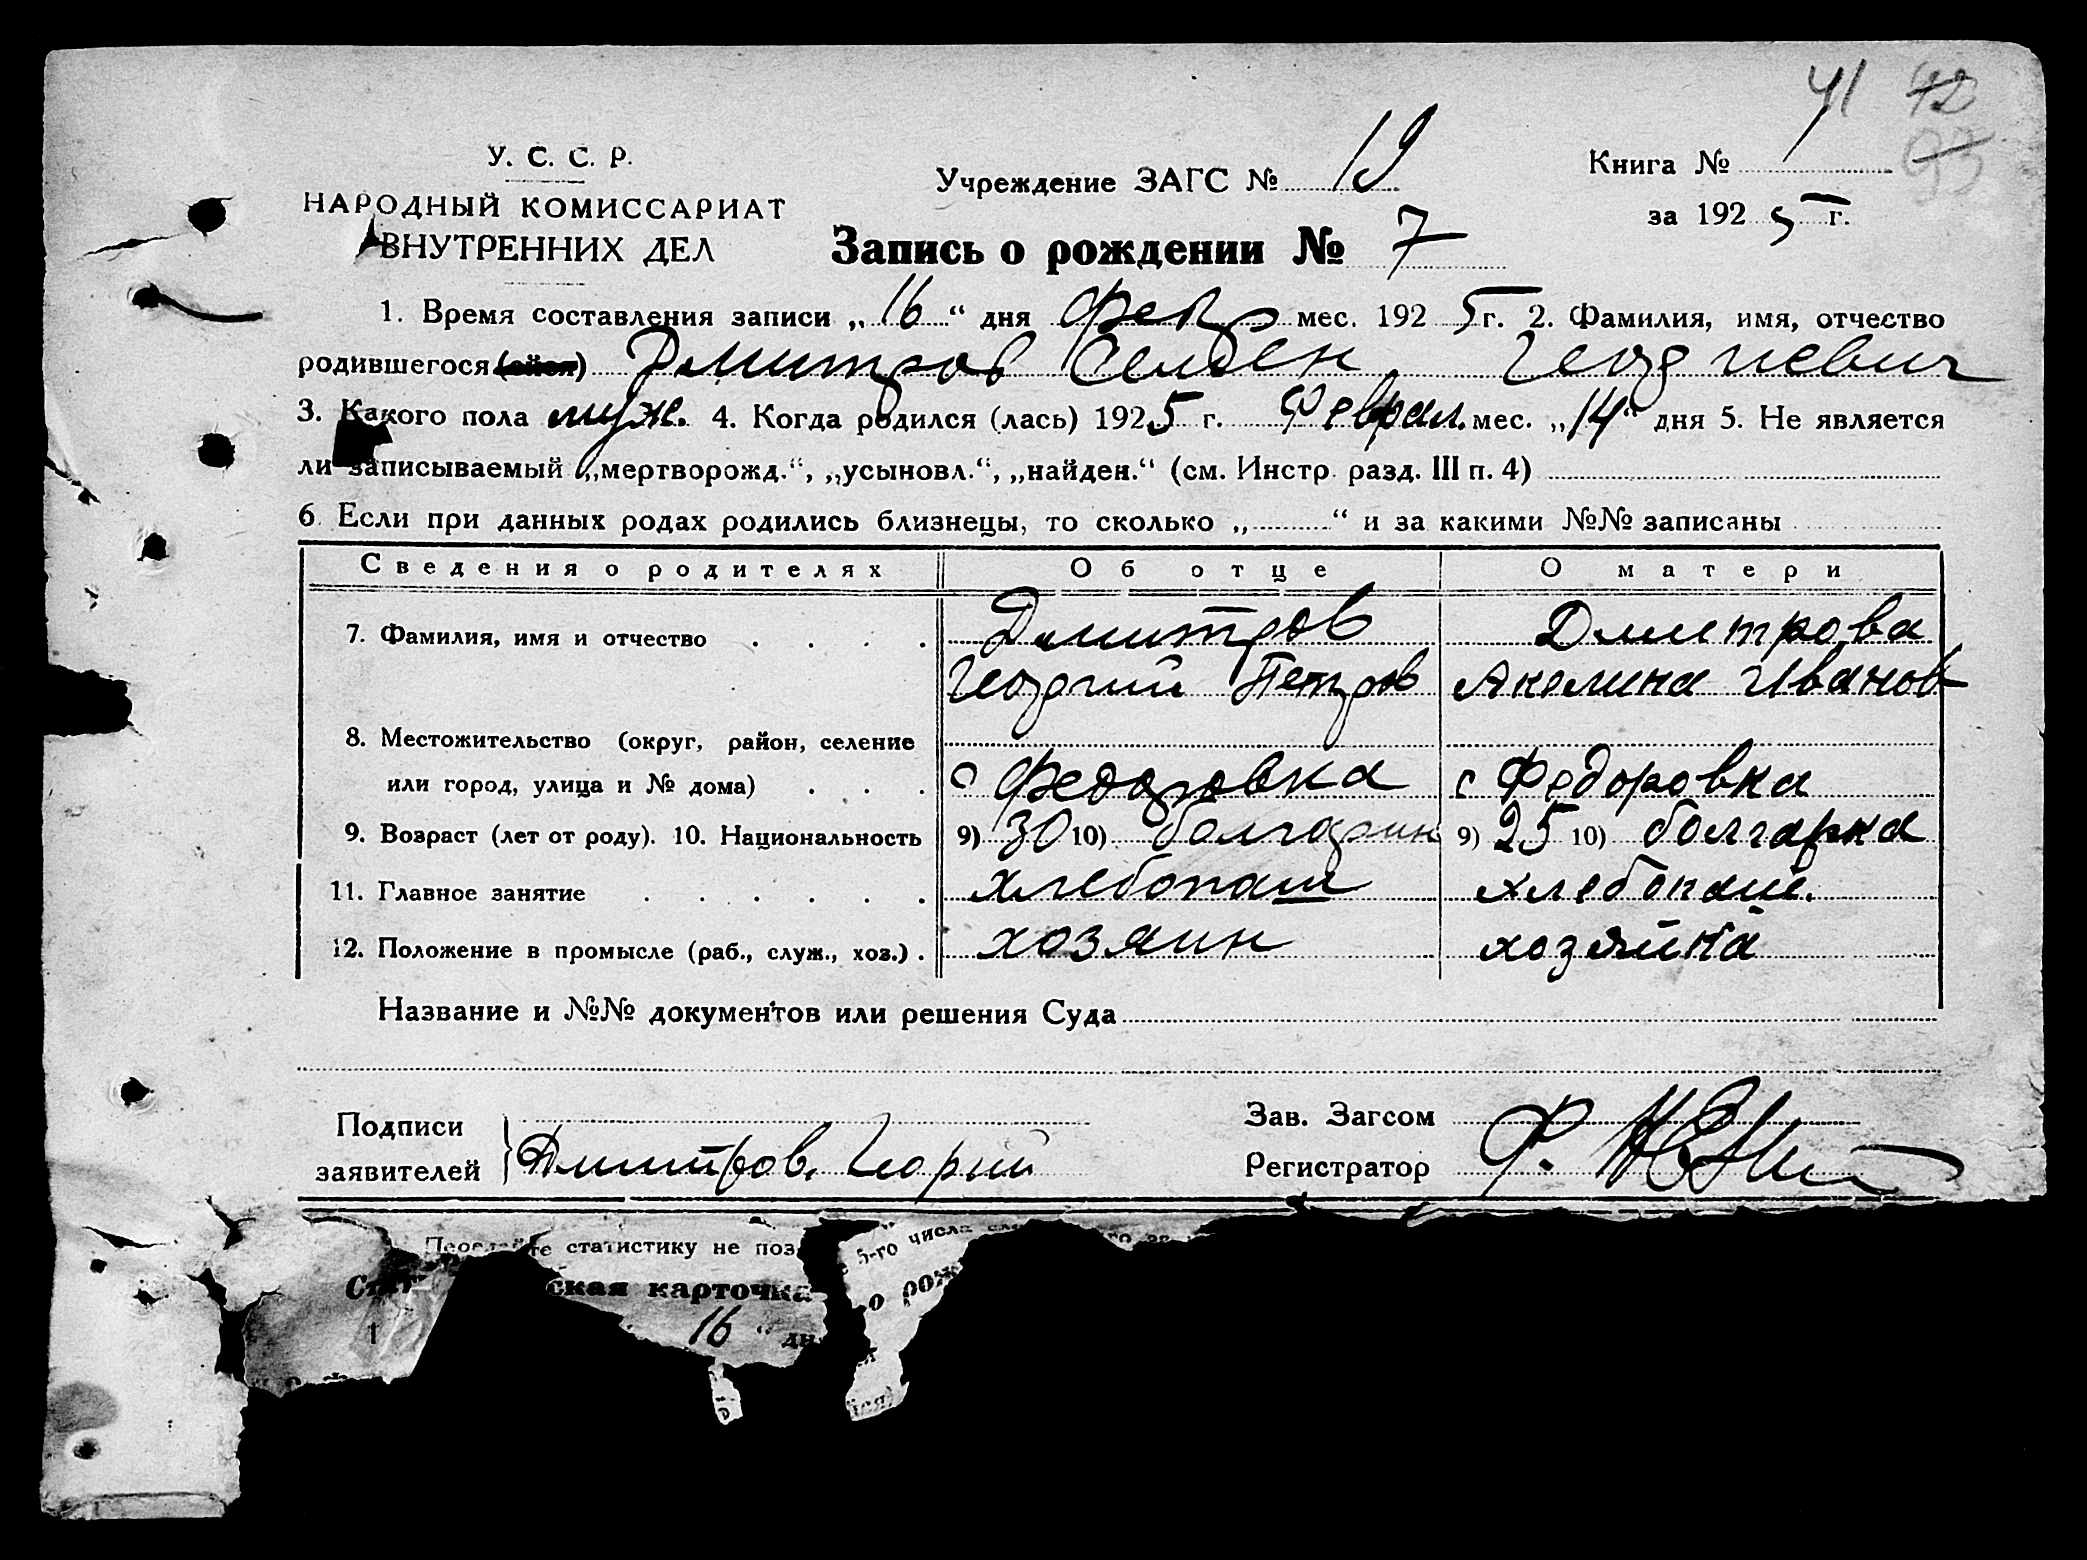 41 42
93
У. С. С. Р.
НАРОДНЫЙ КОМИССАРИАТ
ВНУТРЕННИХ ДЕЛ
Учреждение ЗАГС № 19
Книга № 1
за 192 5 г.
Запись о рождении № 7
1. Время составления записи „ 16 “ дня февр мес. 192 5 г. 2. Фамилия, имя, отчество
родившегося Дмитров Семен Георгиевич
3. Какого пола муж. 4. Когда родился (лась) 192 5 г. Феврал. мес. „ 14 “ дня 5. Не является
ли записываемый „мертворожд.“, „усыновл.“, „найден.“ (см. Инстр. разд. III п. 4)
6. Если при данных родах родились близнецы, то сколько „ “ и за какими №№ записаны
Сведения о родителях Об отце О матери
7. Фамилия, имя и отчество Дмитров Дмитрова
Георгий Петров Акелина Иванов
8. Местожительство (округ, район, селение
или город, улица и № дома) с Федоровка с Федоровка
9. Возраст (лет от роду). 10. Национальность 9) 30 10) болгарин 9) 25 10) болгарка
11. Главное занятие хлебопаш хлебопаш.
12. Положение в промысле (раб., служ., хоз.) хозяин хозяйка
Название и №№ документов или решения Суда
Подписи
заявителей Дмитров. Георгий
Зав. Загсом
Регистратор Ф.
статистику не поз 5-го числа
ская карточка о рож
1 16 “ дн